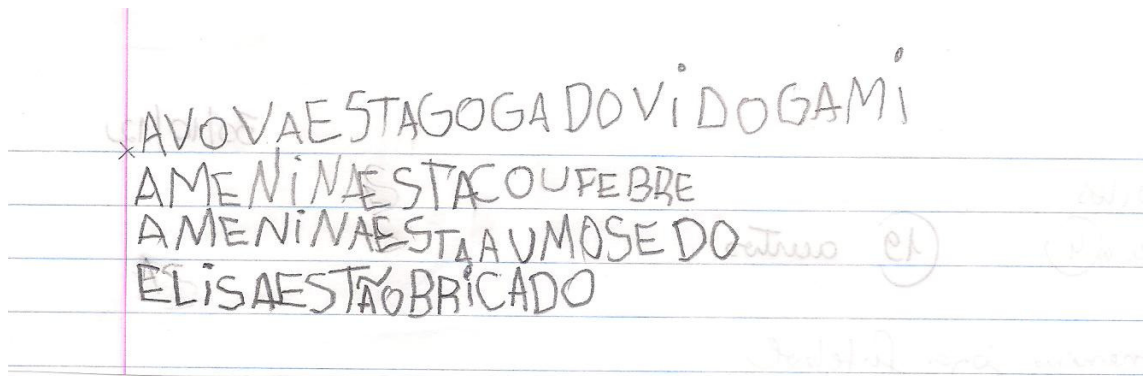 AVOVAESTAGOGADOViDOGAMi
AMENiNAESTACOUFEBRE
AMENiNAESTAAUMOSEDO
ELiSAESTÃOBRiCADO